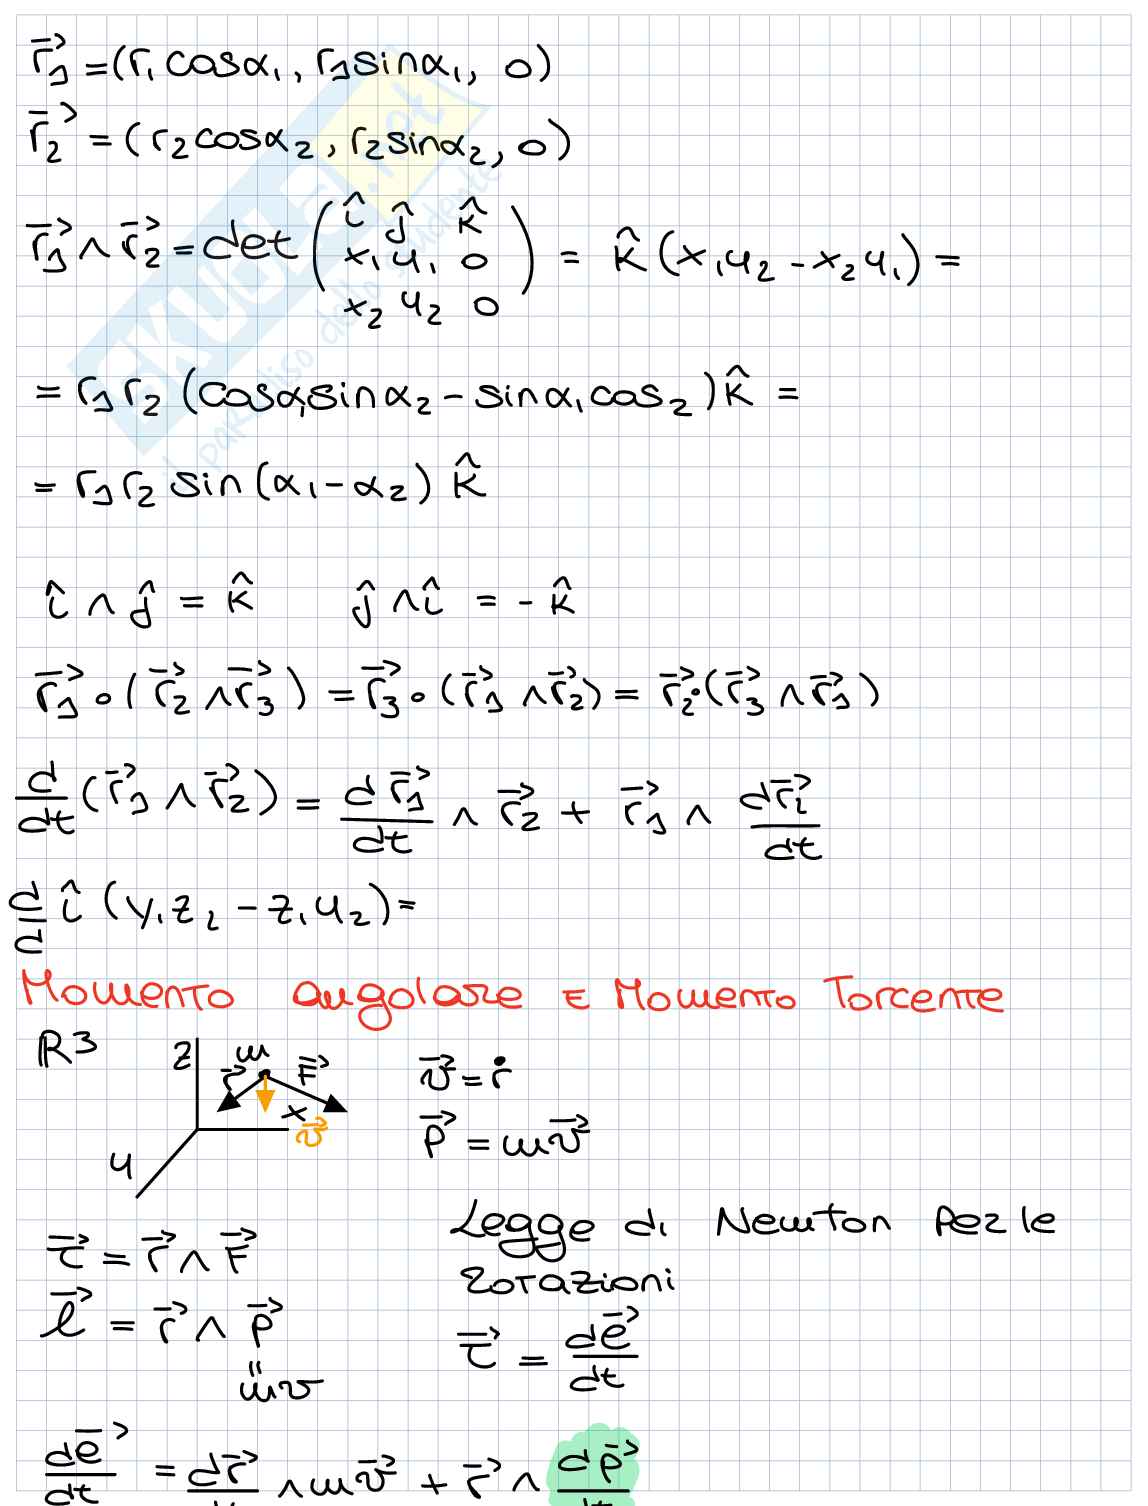 r⃗₁ = (r₁ cosα₁, r₁ sinα₁, 0)
r⃗₂ = (r₂ cosα₂, r₂ sinα₂, 0)
r⃗₁ ∧ r⃗₂ = det ( î ĵ k̂
x₁ y₁ 0
x₂ y₂ 0 ) = k̂ (x₁y₂ - x₂y₁) =
= r₁ r₂ (cosα₁ sinα₂ - sinα₁ cos₂) k̂ =
= r₁ r₂ sin(α₁ - α₂) k̂
î ∧ ĵ = k̂ ĵ ∧ î = - k̂
r⃗₁ ∘ (r⃗₂ ∧ r⃗₃) = r⃗₃ ∘ (r⃗₁ ∧ r⃗₂) = r⃗₂ · (r⃗₃ ∧ r⃗₁)
d/dt (r⃗₁ ∧ r⃗₂) = dr⃗₁/dt ∧ r⃗₂ + r⃗₁ ∧ dr⃗₂/dt
d/d î (y₁z₂ - z₁y₂) =
Momento angolare e Momento Torcente
R3
z m r⃗ F⃗ x v⃗ y
v⃗ = ṙ
p⃗ = mv⃗
τ⃗ = r⃗ ∧ F⃗
ℓ⃗ = r⃗ ∧ p⃗
= mv
Legge di Newton per le
rotazioni
τ⃗ = dℓ⃗/dt
dℓ⃗/dt = dr⃗/dt ∧ mv⃗ + r⃗ ∧ dp⃗/dt
SKUOLA.net
il paradiso dello studente